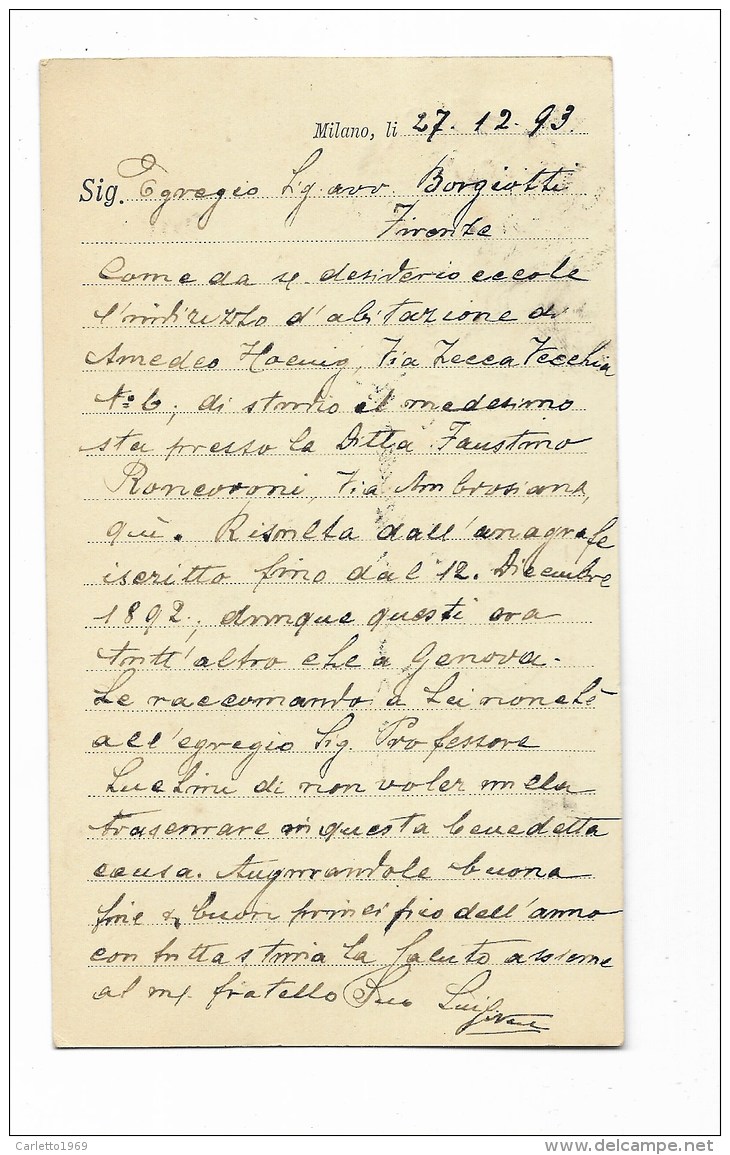 Milano, li 27. 12. 93.
Sig. Egregio Sig avv. Borgiotti
Firenze
Come da s. desiderio eccole
l'indirizzo d'abitazione di
Amedeo Hoenig, Via Zecca Vecchia
No. 6, di studio el medesimo
sta presso la Ditta Faustino
Roncoroni, Via Ambrosiana,
quì. Risulta dall'anagrafe
iscritto fino dal 12. Dicembre
1892., dunque questi era
tutt'altro che a Genova.
Le raccomando a Lei nonchè
all'egregio Sig. Professore
di non voler nulla
trascurare in questa benedetta
causa. Augurandole buona
fine & buon principio dell'anno
con tutta stima La Saluto assieme
al m. fratello Suo
Carletto1969
delcampe.net